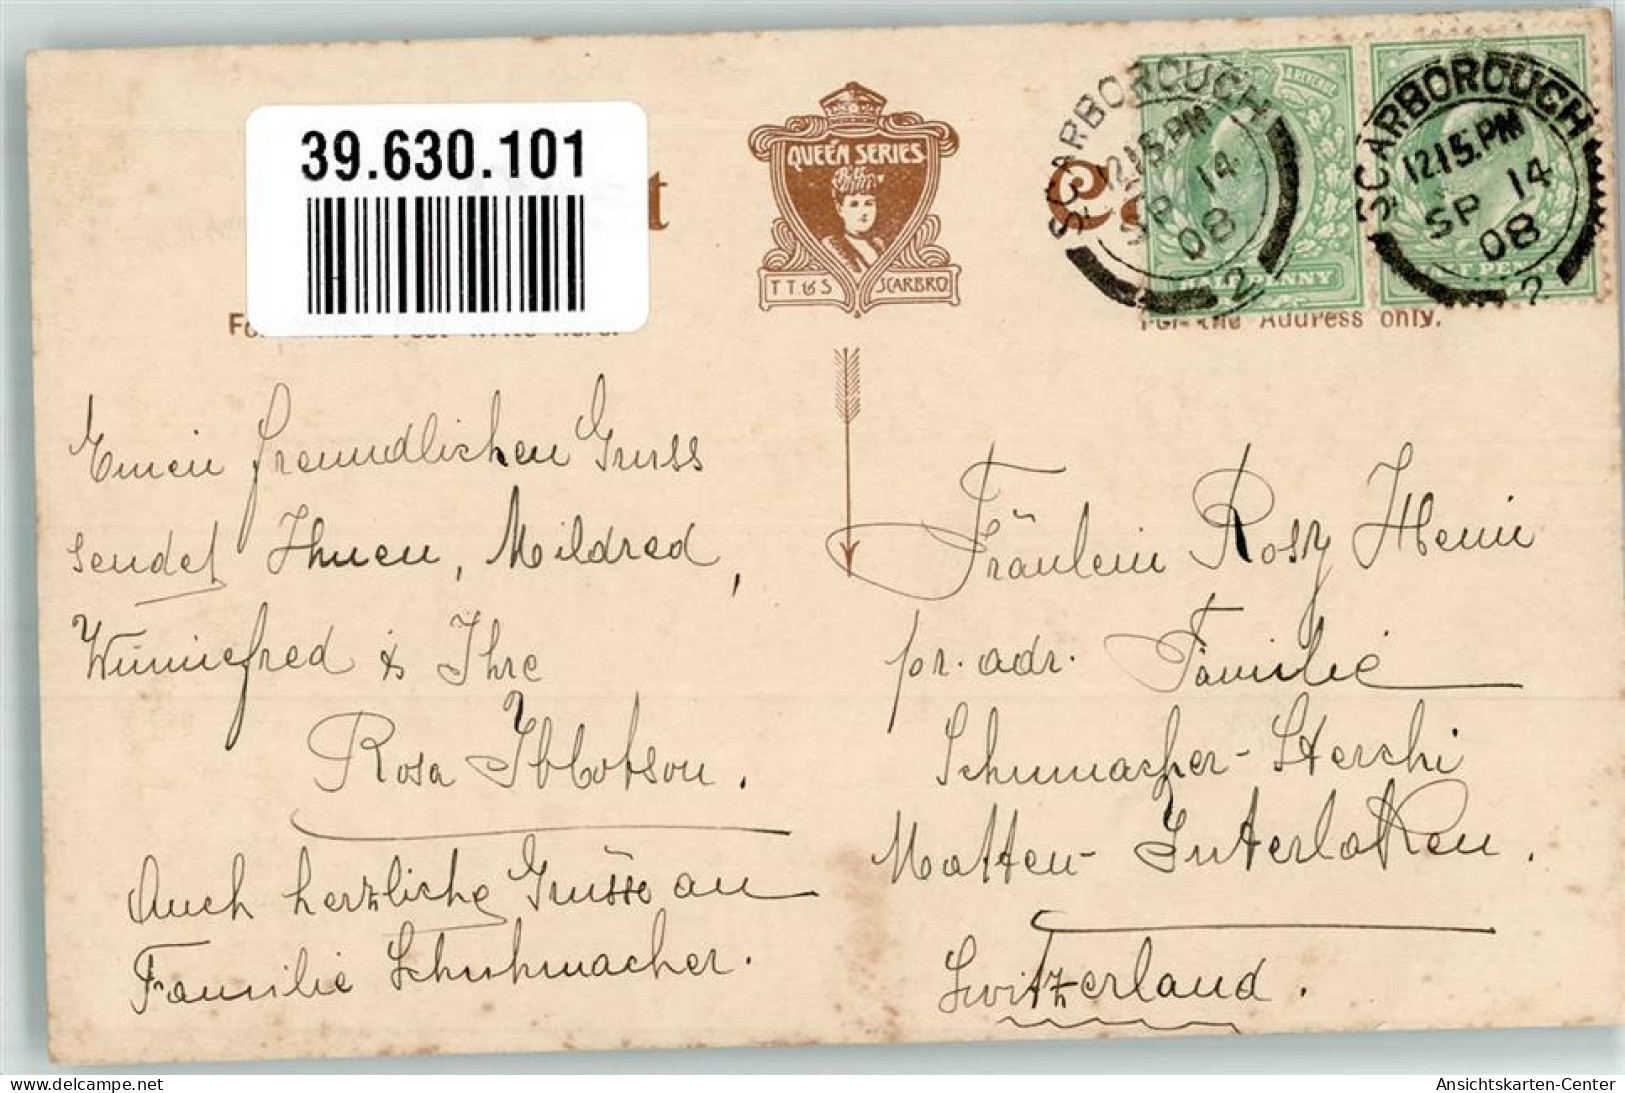 39.630.101
t
QUEEN SERIES
T T & S SCARBRO
C
SCARBOROUGH
12.15.PM
SP 14
08
2
HALF PENNY
SCARBOROUGH
12.15.PM
SP 14
08
2
For the Address only.
Einen freundlichen Gruss
sendet Ihnen, Mildred,
Winniefred & Ihre
Rosa Ibbotson.
Auch herzliche Grüsse an
Familie Schuhmacher.
Fräulein Rosy
pr. adr. Familie
Schumacher-Sterchi
Matten-Interlaken.
Switzerland.
delcampe.net
Ansichtskarten-Center